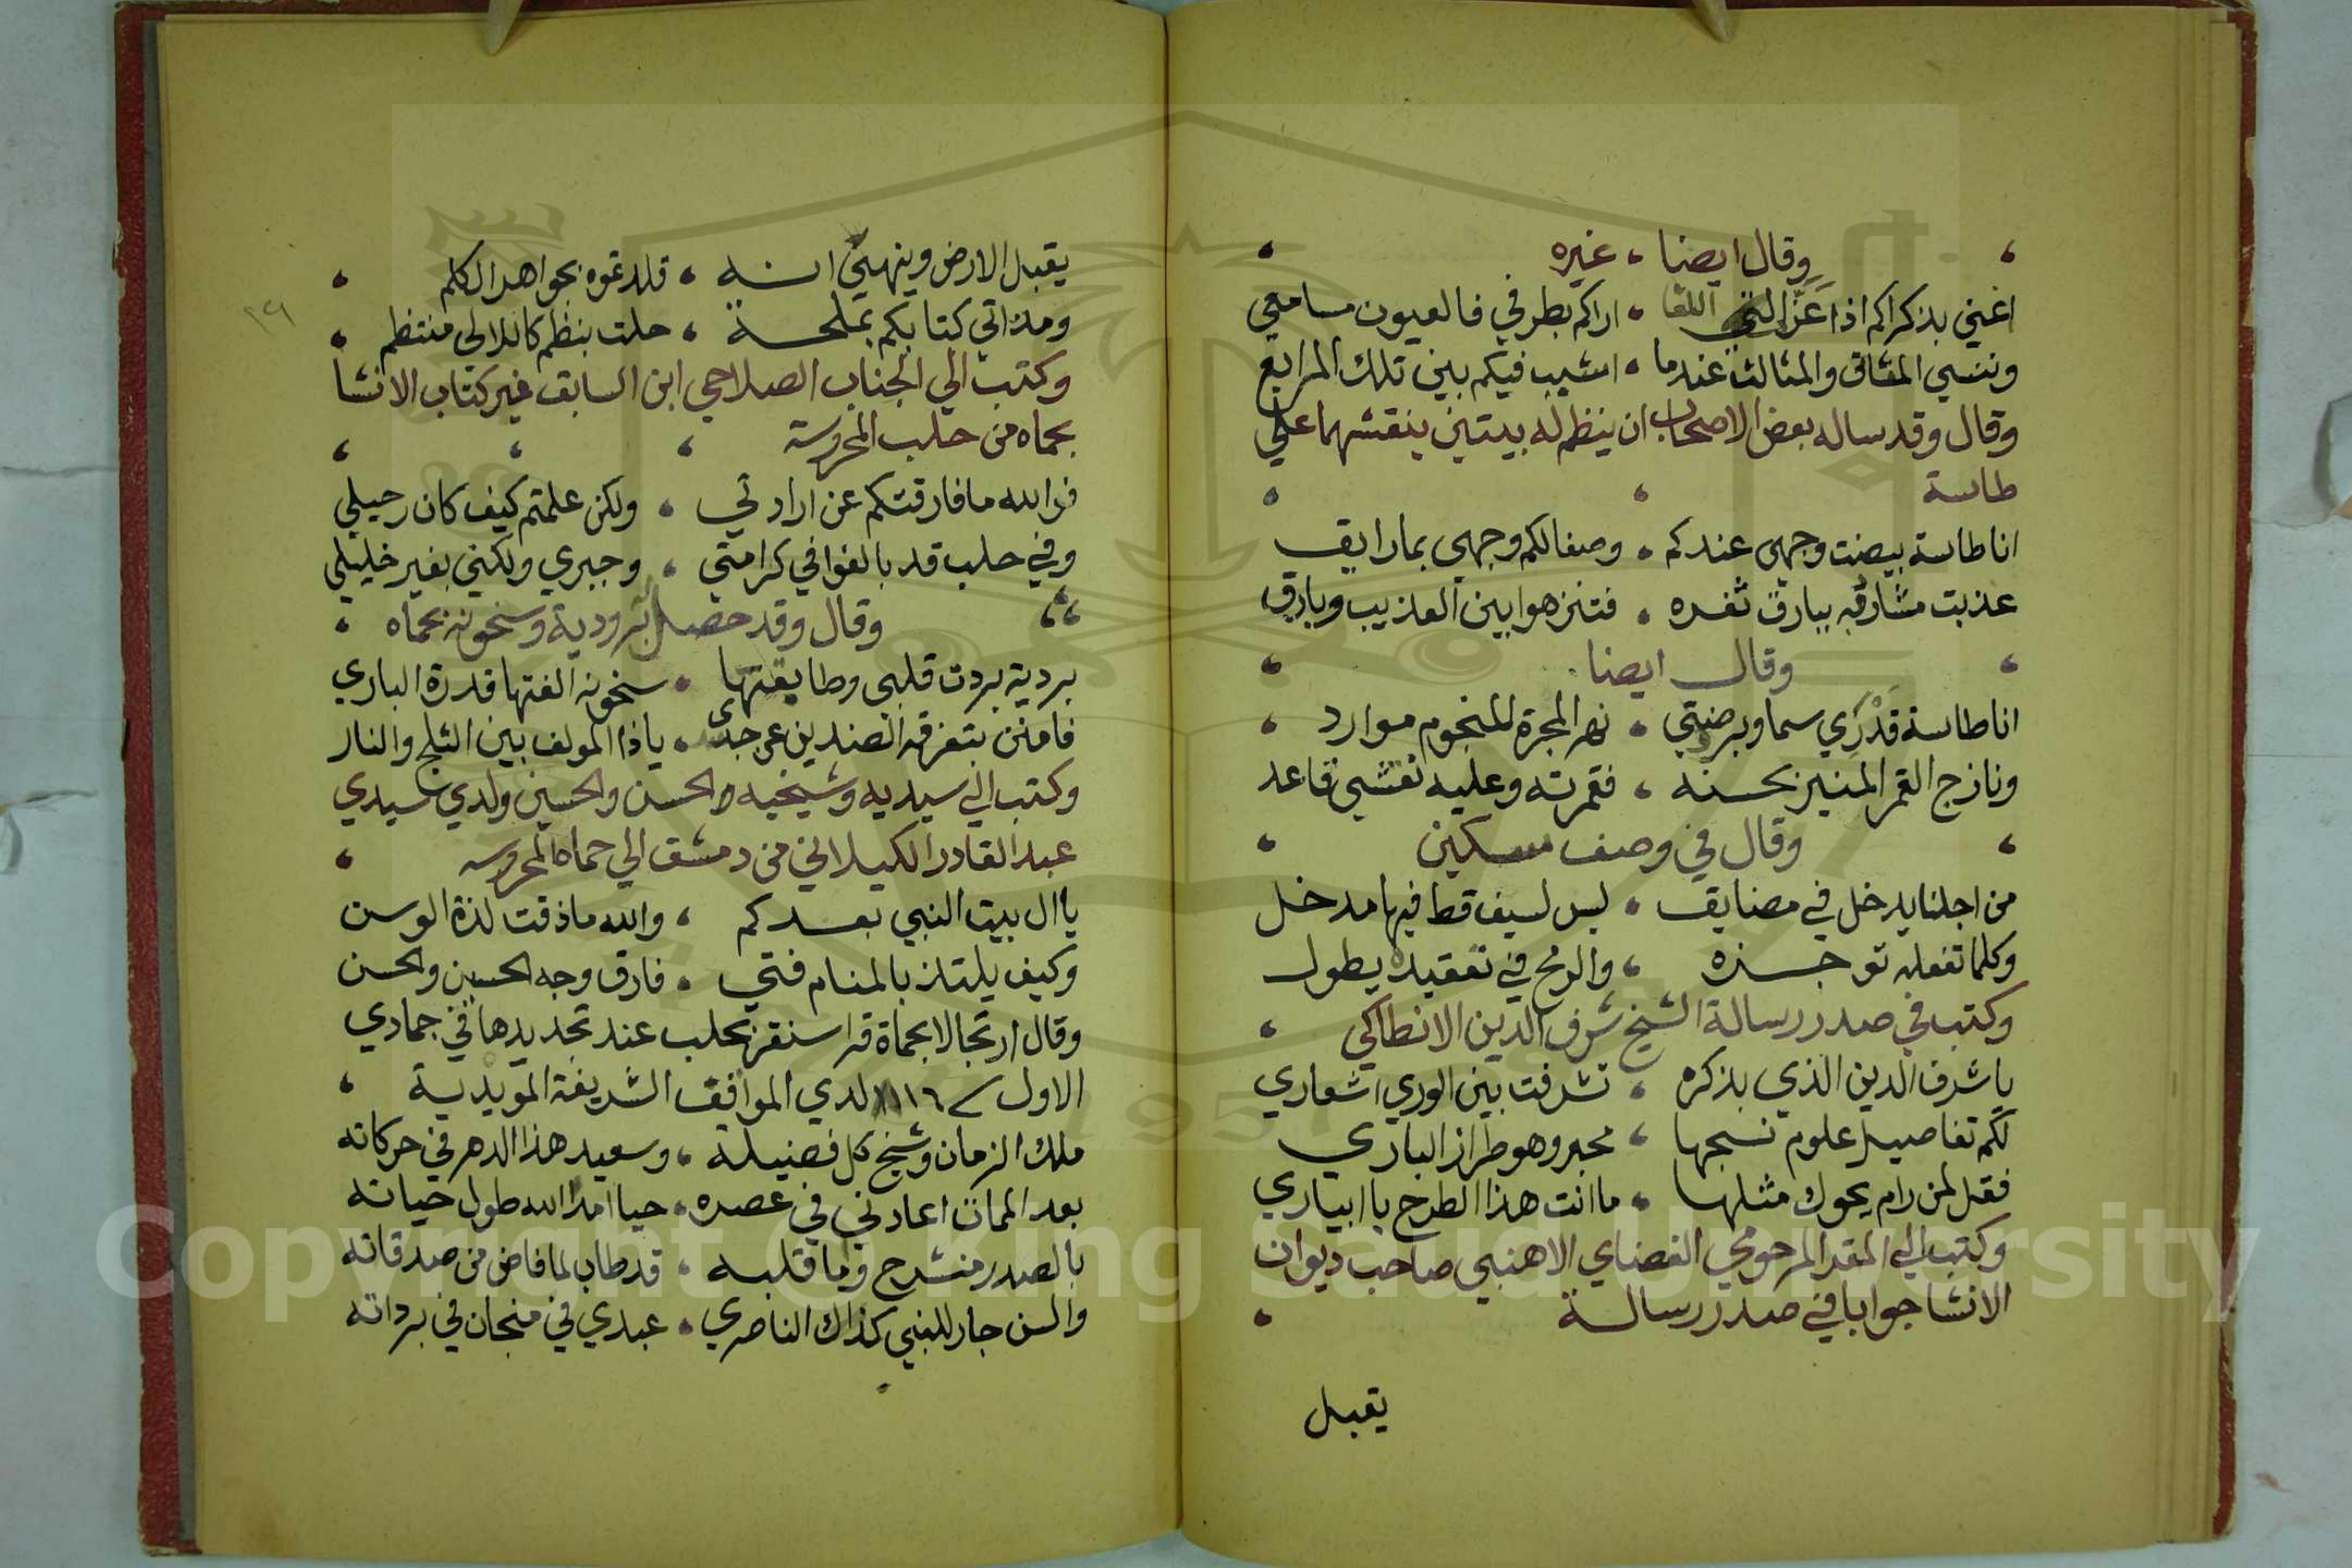 وقال ايضا ، غيره
اغني بذكراكم اذا عز اللقا ، اراكم بطرفي فالعيون مسامعي
وننسي المثاني والمثالث عندما ، اشبب فيكم بين تلك المرابع
وقال وقد ساله بعض الاصحاب ان ينظم له بيتين ينقشهما علي
طاسة
انا طاسة بيضت وجهي عندكم ، وصفا لكم وجهي بما رايق
عذبت مشارقه ببارق ثغره ، فتنزهوا بين العذيب وبارق
وقال ايضا
انا طاسة قدري سما وبرضتي ، نهر المجرة للنجوم موارد
ونازج القمر المنير بحسنه ، فقمرته وعليه نقشي قاعد
وقال في وصف سكين
من اجلنا يدخل في مضايق ، ليس لسيف قط فيها مدخل
وكلما تفعله توجزه ، والرمح في تعقيده يطول
وكتب في صدر رسالة الشيخ شرف الدين الانطاكي
يا شرف الدين الذي بذكره ، تشرفت بين الوري اشعاري
لكم تفاصيل علوم نسجها ، محبر وهو طراز الباري
فقل لمن رام يحوك مثلها ، ما انت هذا الطرح يا ابياري
وكتب الي المقر المرحومي القضاي الاهنبي صاحب ديوان
الانشا جوابا في صدر رسالة
يقبل
١٩
يقبل الارض وينهي انه ، قلدتموه بجواهر الكلم
ومذ اتي كتابكم بملحة ، حلت بنظم كاللالي منتظم
وكتب الي الجناب الصلاحي ابن السابق غير كتاب الانشا
بحماه من حلب المحروسة
فوالله ما فارقتكم عن ارادتي ، ولكن علمتم كيف كان رحيلي
وفي حلب قد بالغوا في كرامتي ، وجبري ولكني بغير خليلي
وقال وقد حصل برودية وسخونه بحماه
بردية بردت قلبي وطابقتها ، سخونه الفتها قدرة الباري
فامنن بتفرقه الضدين عن جسدي ، يا ذا المولف بين الثلج والنار
وكتب الي سيديه وشيخيه الحسن والحسين ولدي سيدي
عبد القادر الكيلاني من دمشق الي حماه المحروسه
يا ال بيت النبي بعدكم ، والله ما ذقت لذة الوسن
وكيف يلتذ بالمنام فتي ، فارق وجه الحسين والحسن
وقال ارتجالا بحماة قراسنقر بحلب عند تجديدها في جمادي
الاول لدي المواقف الشريفة المويدية
ملك الزمان وشيخ كل فضيلة ، وسعيد هذا الدهر في حركاته
بعد الممات اعادني في عصره ، حيا امد الله طول حياته
بالصدر منشرح وما قلبه ، قد طاب لما فاض من صدقاته
والسن جار للنبي كذاك الناصري ، عبدي في منجان في برداته
Copyright © King Saud University
1957